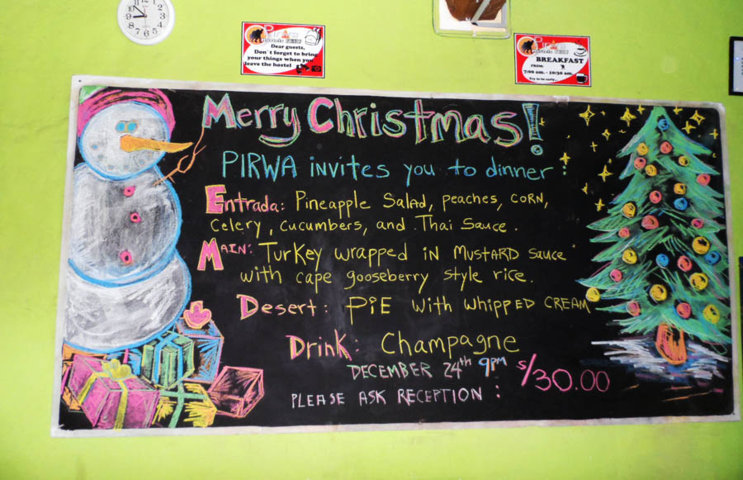 Dear guests,
Don't forget to bring
your things when you
leave the hostel
BREAKFAST
FROM:
7:00 am. - 10:30 am.
Merry Christmas!
PIRWA invites you to dinner:
Entrada: Pineapple Salad, peaches, CORN,
Celery, cucumbers, and Thai Sauce.
MAIN: Turkey wrapped iN MUSTARD sauce
with cape gooseberry style rice.
Desert: PiE with whipped CREAM
Drink: Champagne
DECEMBER 24th 9PM
PLEASE ASK RECEPTION: s/30.00